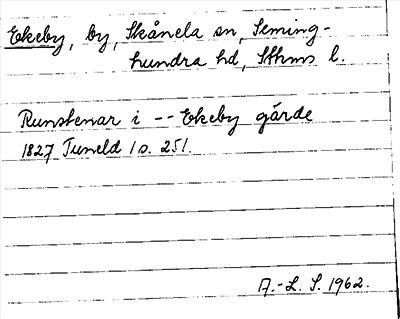 Ekeby, by, Skånela sn, Seming-
hundra hd, Sthms l.
Runstenar i -- Ekeby gärde
1827 Tuneld 1 s. 251.
A.-L. S. 1962.